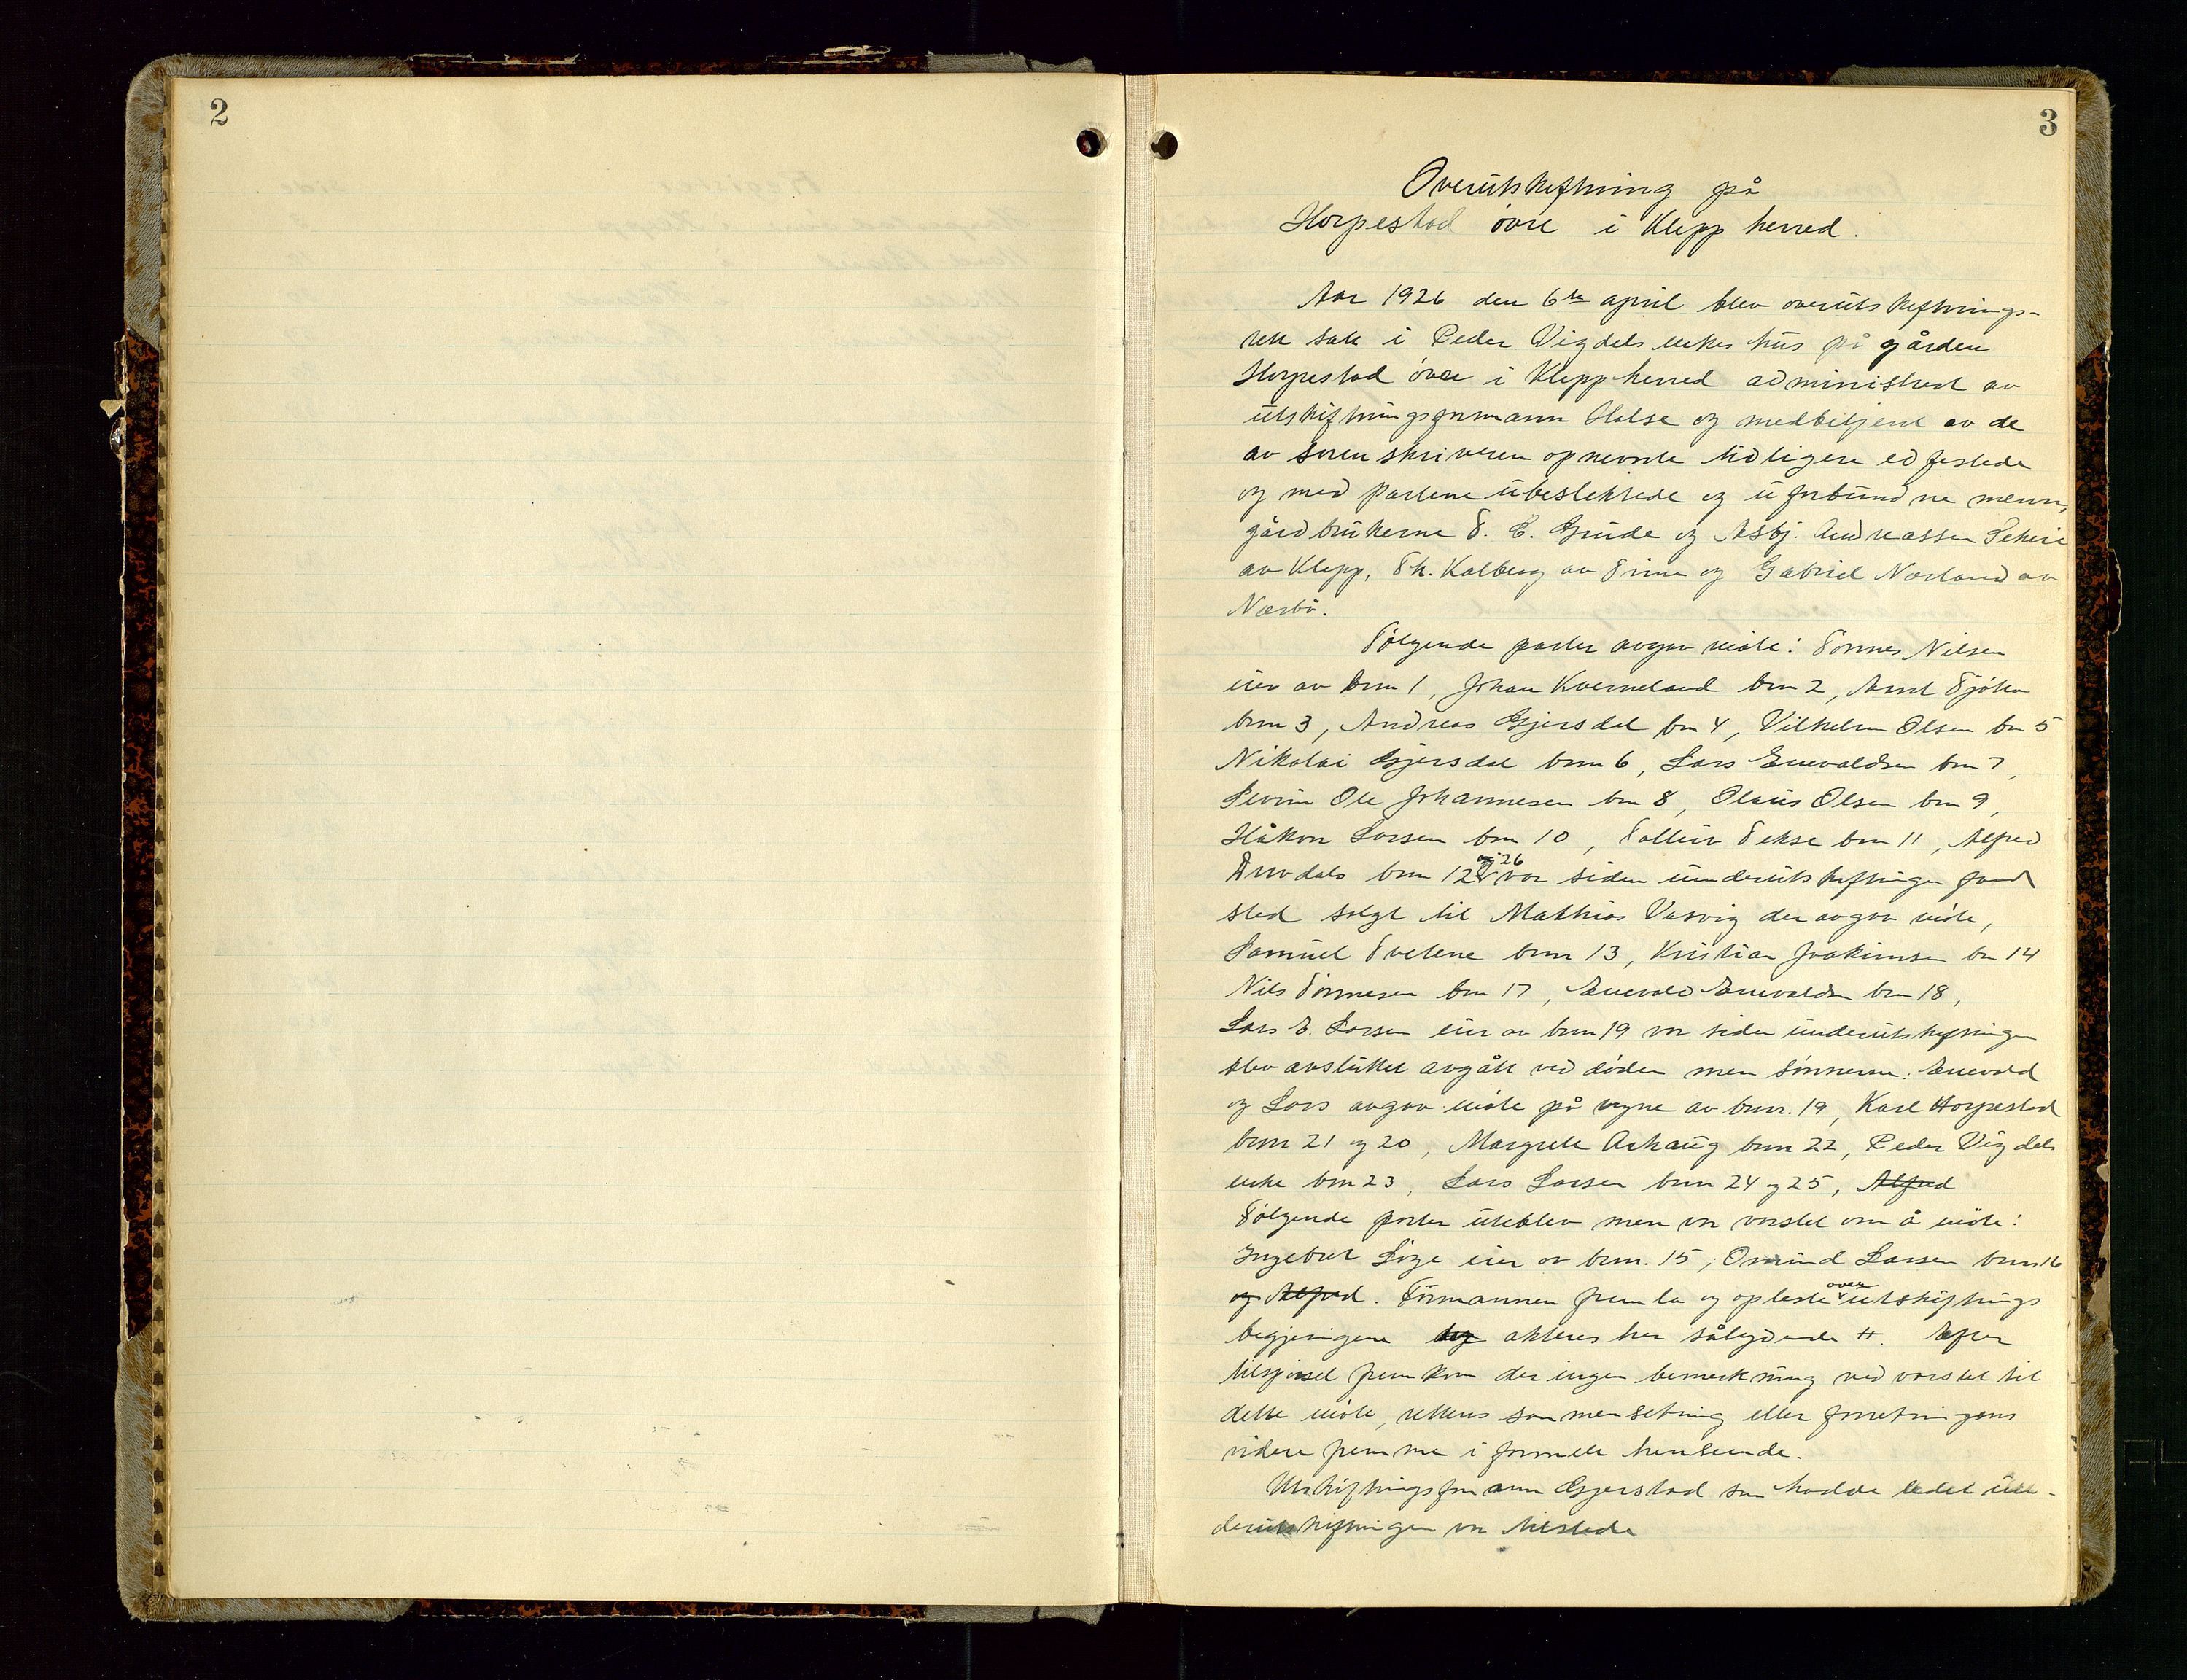 2
3
Overutskiftning på
Horpestad övre i Klepp herred.
Aar 1926 den 6te april blev overutskiftnings-
rett satt i Peder Vigdels enkes hus på gården
Horpestad övre i Klepp herred administrert av
utskiftningsformann Halse og medbetjent av de
av sorenskriveren opnevnte tidligere edfestede
og med partene ubeslektede og uforbundne menn,
gårdbrukerne T. E. Grude og Asbj. Andreassen
av Klepp, Th. Kalberg av Time og Gabriel Nærland av
Nærbö.
Fölgende parter avgav möte: Tönnes Nilsen
eier av brnr 1, Johan Kverneland brn 2, Arnt Tjötta
brnr 3, Andreas Gjersdal bn 4, Vilhelm Olsen bn 5
Nikolai Gjersdal brnr 6, Lars Enevaldsen brn 7,
Ole Johannesen brn 8, Olaus Olsen brn 9,
Håkon Larsen brn 10, Tolleiv Tekse brn 11, Alfred
brnr 12 og 26 var siden underutskiftningen fandt
sted solgt til Mathias Vasvig der avgav möte,
Samuel Tvetene brnr 13, Kristian Joakimsen bn 14
Nils Tönnesen brn 17, Enevald Enevaldsen brn 18,
Lars E. Larsen eier av brnr 19 var siden underutskiftningen
blev avsluttet avgått ved döden men sönnerne: Enevald
og Lars avgav möte på vegne av brnr. 19, Karl Horpestad
brnr 21 og 20, Margrete Arhaug brnr 22, Peder Vigdels
enke brn 23, Lars Larsen brnr 24 og 25, Alfred
Fölgende parter uteblev men var varslet om å möte:
Ingebret Söge eier av brnr. 15, Omund Larsen brnr 16
og Alfred. Formannen fremla og opleste over utskiftnings
begjeringene akteres her sålydende H. Efter
tilspörsel fremkom der ingen bemerkning ved varslet til
dette möte, rettens sammensetning eller forretningens
videre fremme i formell henseende.
Utskiftningsformann Gjerstad som hadde ledet un-
derutskiftningen var tilstede